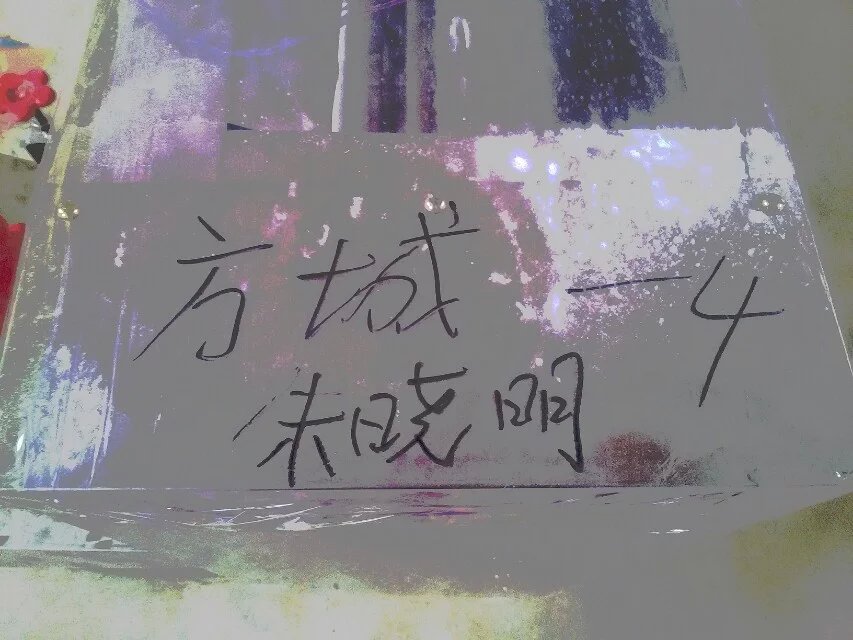 方城一4
朱晓明